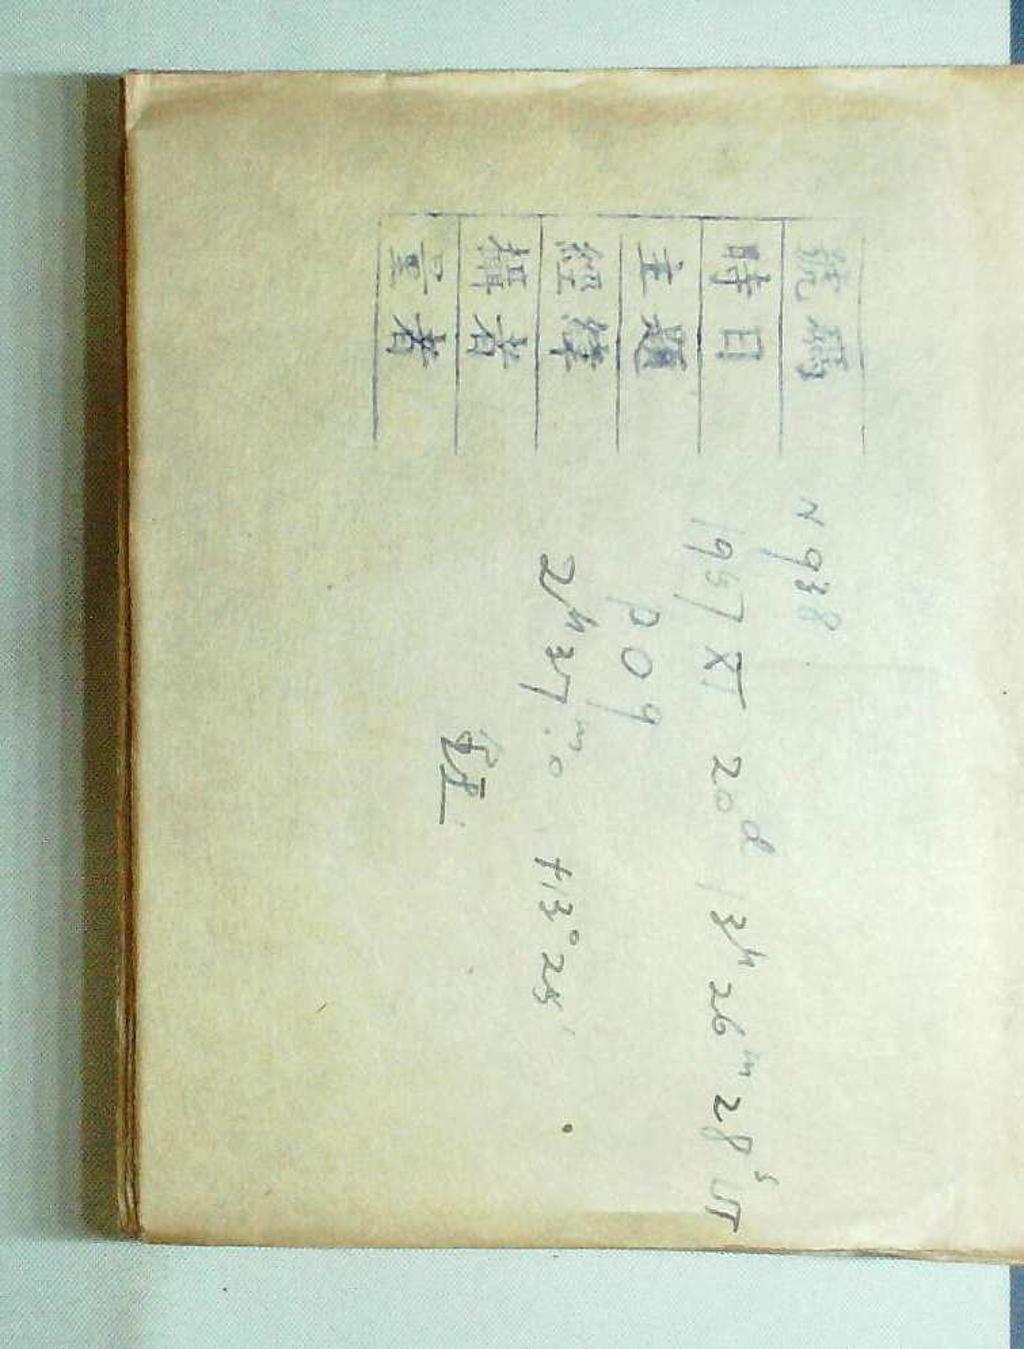 號碼 N938
時日 1957 XI 20ᵈ 13ʰ 26ᵐ 28ˢ UT
主題 P09
經緯 2ʰ37ᵐ.0 +13°25′
攝者
量者